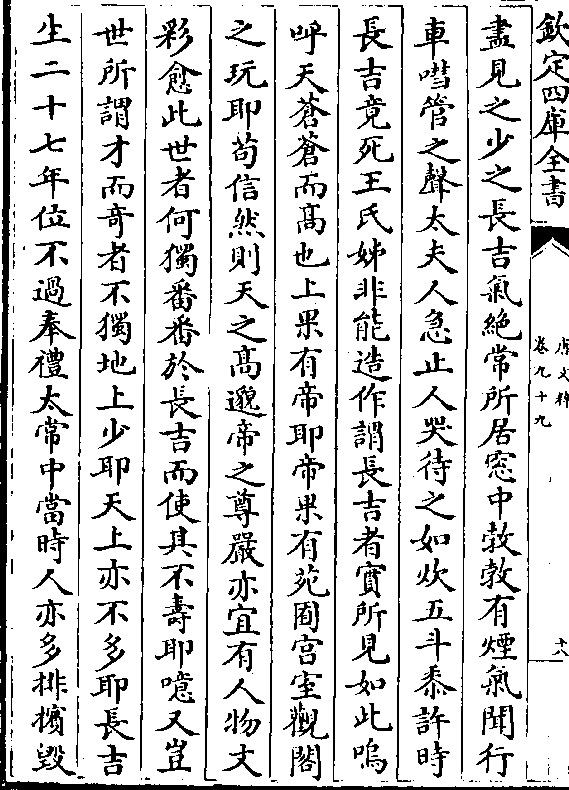 欽定四庫全書
唐文粹
卷九十九
十八
盡見之少之長吉氣絶常所居窓中㪍㪍有煙氣聞行
車嘒管之聲太夫人急止人哭待之如炊五斗黍許時
長吉竟死王氏姊非能造作謂長吉者實所見如此嗚
呼天蒼蒼而髙也上果有帝耶帝果有苑囿宫室觀閣
之玩耶茍信然則天之髙邈帝之尊嚴亦宜有人物文
彩愈此世者何獨番番於長吉而使其不壽耶噫又豈
世所謂才而竒者不獨地上少耶天上亦不多耶長吉
生二十七年位不過奉禮太常中當時人亦多排擯毀